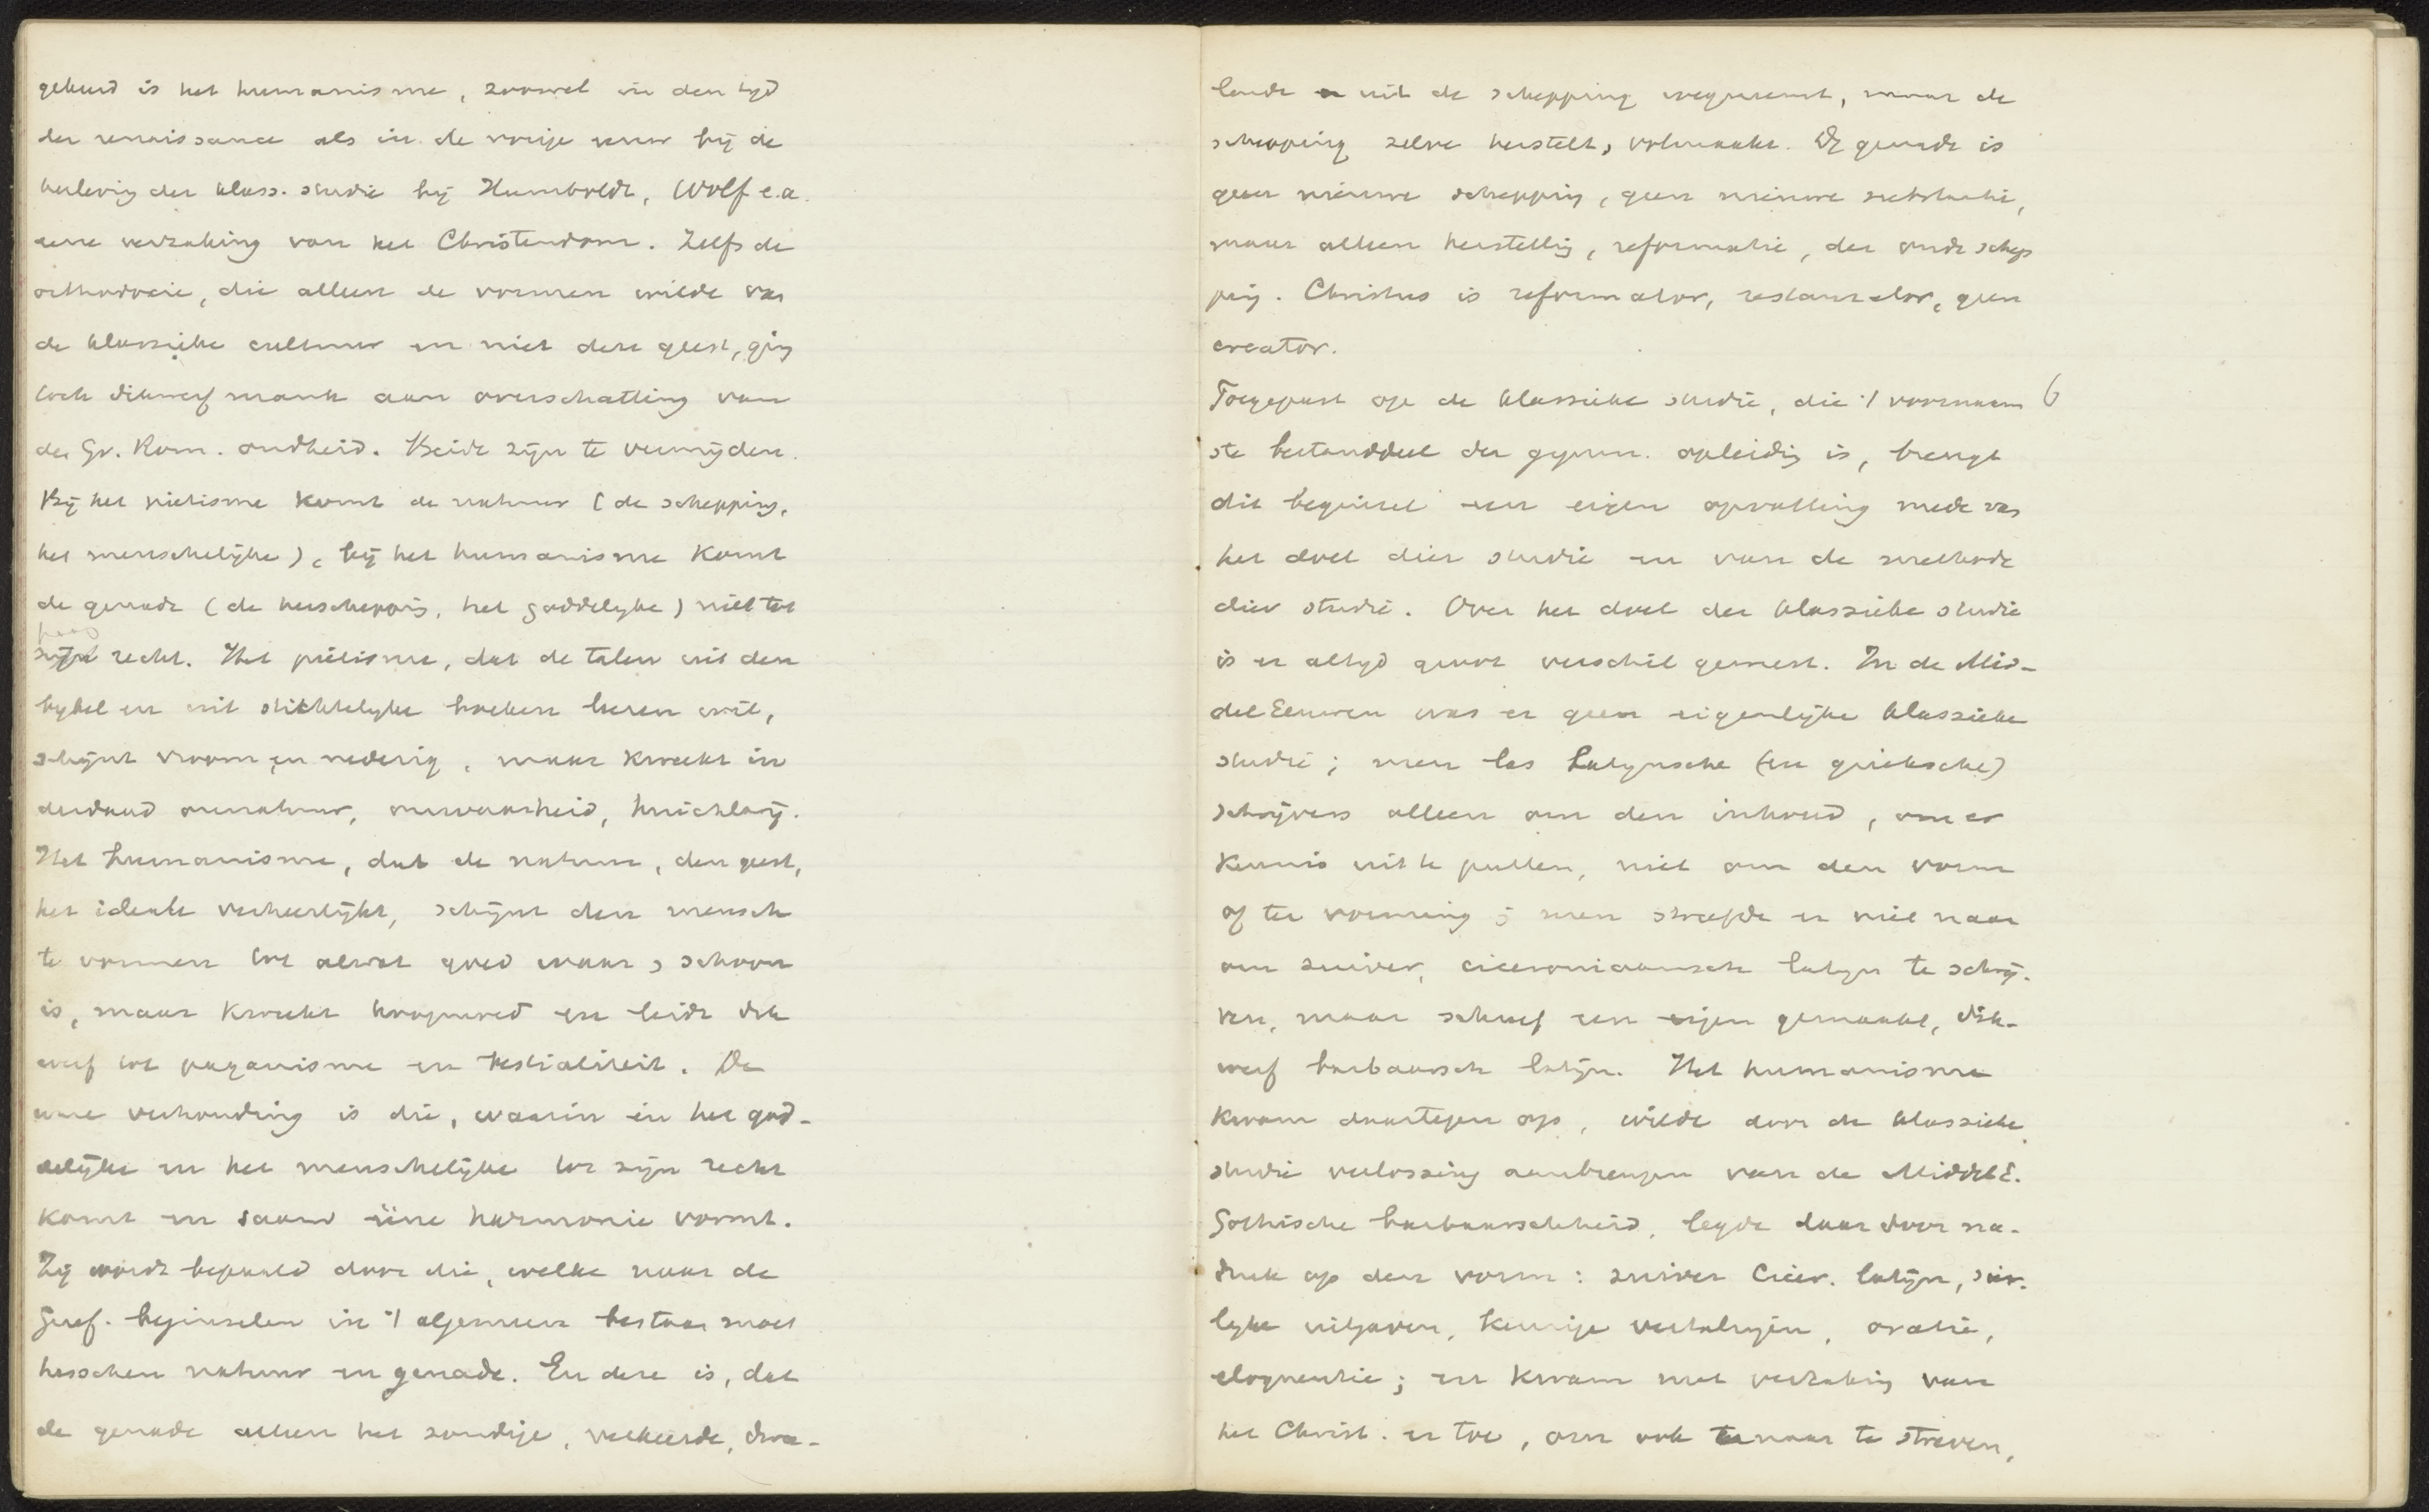 gebeurd is het humanisme, zoowel in den tijd
der renaissance als in de vorige eeuw bij de
herleving der klass. studie bij Humboldt, Wolf e.a.
eene verzaking van het Christendom. Zelfs de
orthodoxie, die alleen de vormen wilde van
de klassieke cultuur en niet den geest, ging
toch dikwerf mank aan overschatting van
de Gr. Rom. oudheid. Beide zijn te vermijden.
Bij het pietisme komt de natuur (de schepping,
het menschelijke), bij het humanisme komt
de genade (de herschepping, het goddelijke) niet tot
zijn recht. Het pietisme, dat de talen uit den
bijbel en uit stichtelijke boeken leeren wil,
schijnt vroom en nederig, maar kweekt in
derdaad onnatuur, onwaarheid, huichlarij.
Het humanisme, dat de natuur, den geest,
het ideale verheerlijkt, schijnt den mensch
te vormen tot alwat goed waar, schoon
is, maar kweekt hoogmoed en leidt dik
werf tot paganisme en bestialiteit. De
ware verhouding is die, waarin èn het god-
delijke èn het menschelijke tot zijn recht
komt en saam ééne harmonie vormt.
Zij wordt bepaald door die, welke naar de
Geref. beginselen in 't algemeen bestaan moet
tusschen natuur en genade. En deze is, dat
de genade alleen het zondige, verkeerde, dwa-
lende uit de schepping wegneemt, maar de
schepping zelve herstelt, volmaakt. De genade is
geen nieuwe schepping, geen nieuwe substantie,
maar alleen herstelling, reformatie, der oude schep
ping. Christus is reformator, restaurator, geen
creator.
Toegepast op de klassieke studie, die 't voornaam 6
ste bestanddeel der gymn. opleiding is, brengt
dit beginsel een eigen opvatting mede van
het doel dier studie en van de methode
dier studie. Over het doel der klassieke studie
is er altijd groot verschil geweest. In de Mid-
del Eeuwen was er geen eigenlijke klassieke
studie; men las Latijnsche (en grieksche)
schrijvers alleen om den inhoud, om er
kennis uit te putten, niet om den vorm
of ter vorming; men streefde er niet naar
om zuiver, ciceroniaansch latijn te schrij-
ven, maar schreef een eigen gemaakt, dik-
werf barbaarsch latijn. Het humanisme
kwam daartegen op, wilde door de klassieke
studie verlossing aanbrengen van de Middel E.
Gothische barbaarschheid, legde daardoor na-
druk op den vorm: zuiver Cicer. latijn, sier-
lijke uitgaven, keurige vertalingen, oratie,
eloquentie; en kwam met verzaking van
het Christ. er toe, om ook ernaar te streven,